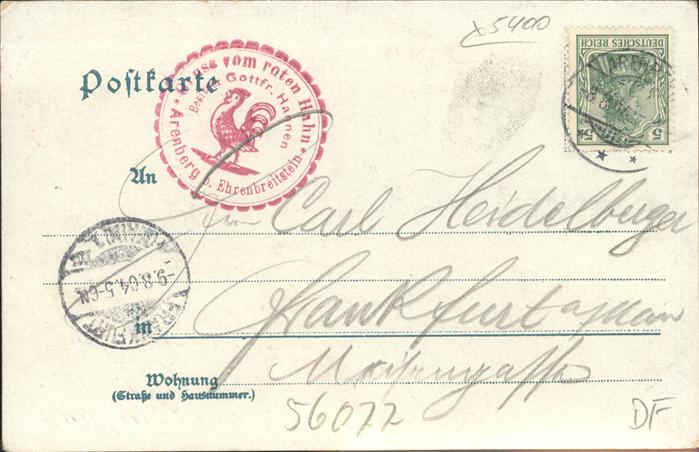 x5400
DEUTSCHES REICH
5 5
Postkarte
Gruss vom roten Hahn
Besitzer Gottfr. Hannen
* Arenberg b. Ehrenbreitstein *
An
Carl Heidelberger
FRANKFURT (MAIN) 1
-9.8.04.5-6N
in
Frankfurt a/Main
Wohnung
(Straße und Hausnummer.)
56072
DF